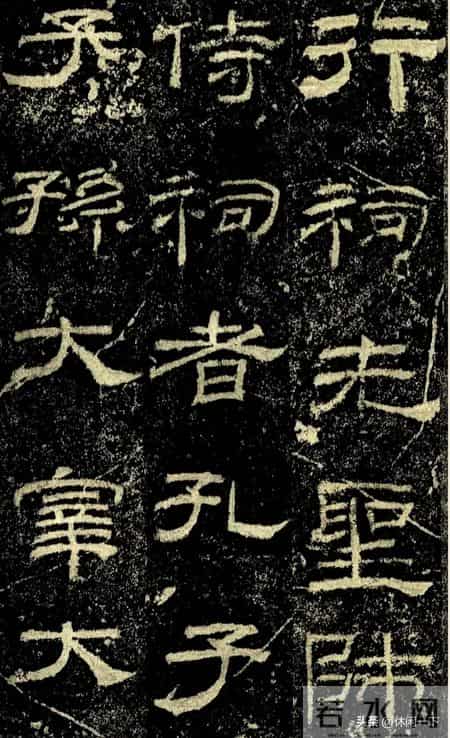 行祠先聖師
侍祠者孔子
子孫大宰大
若水网
头条 @休闲一下